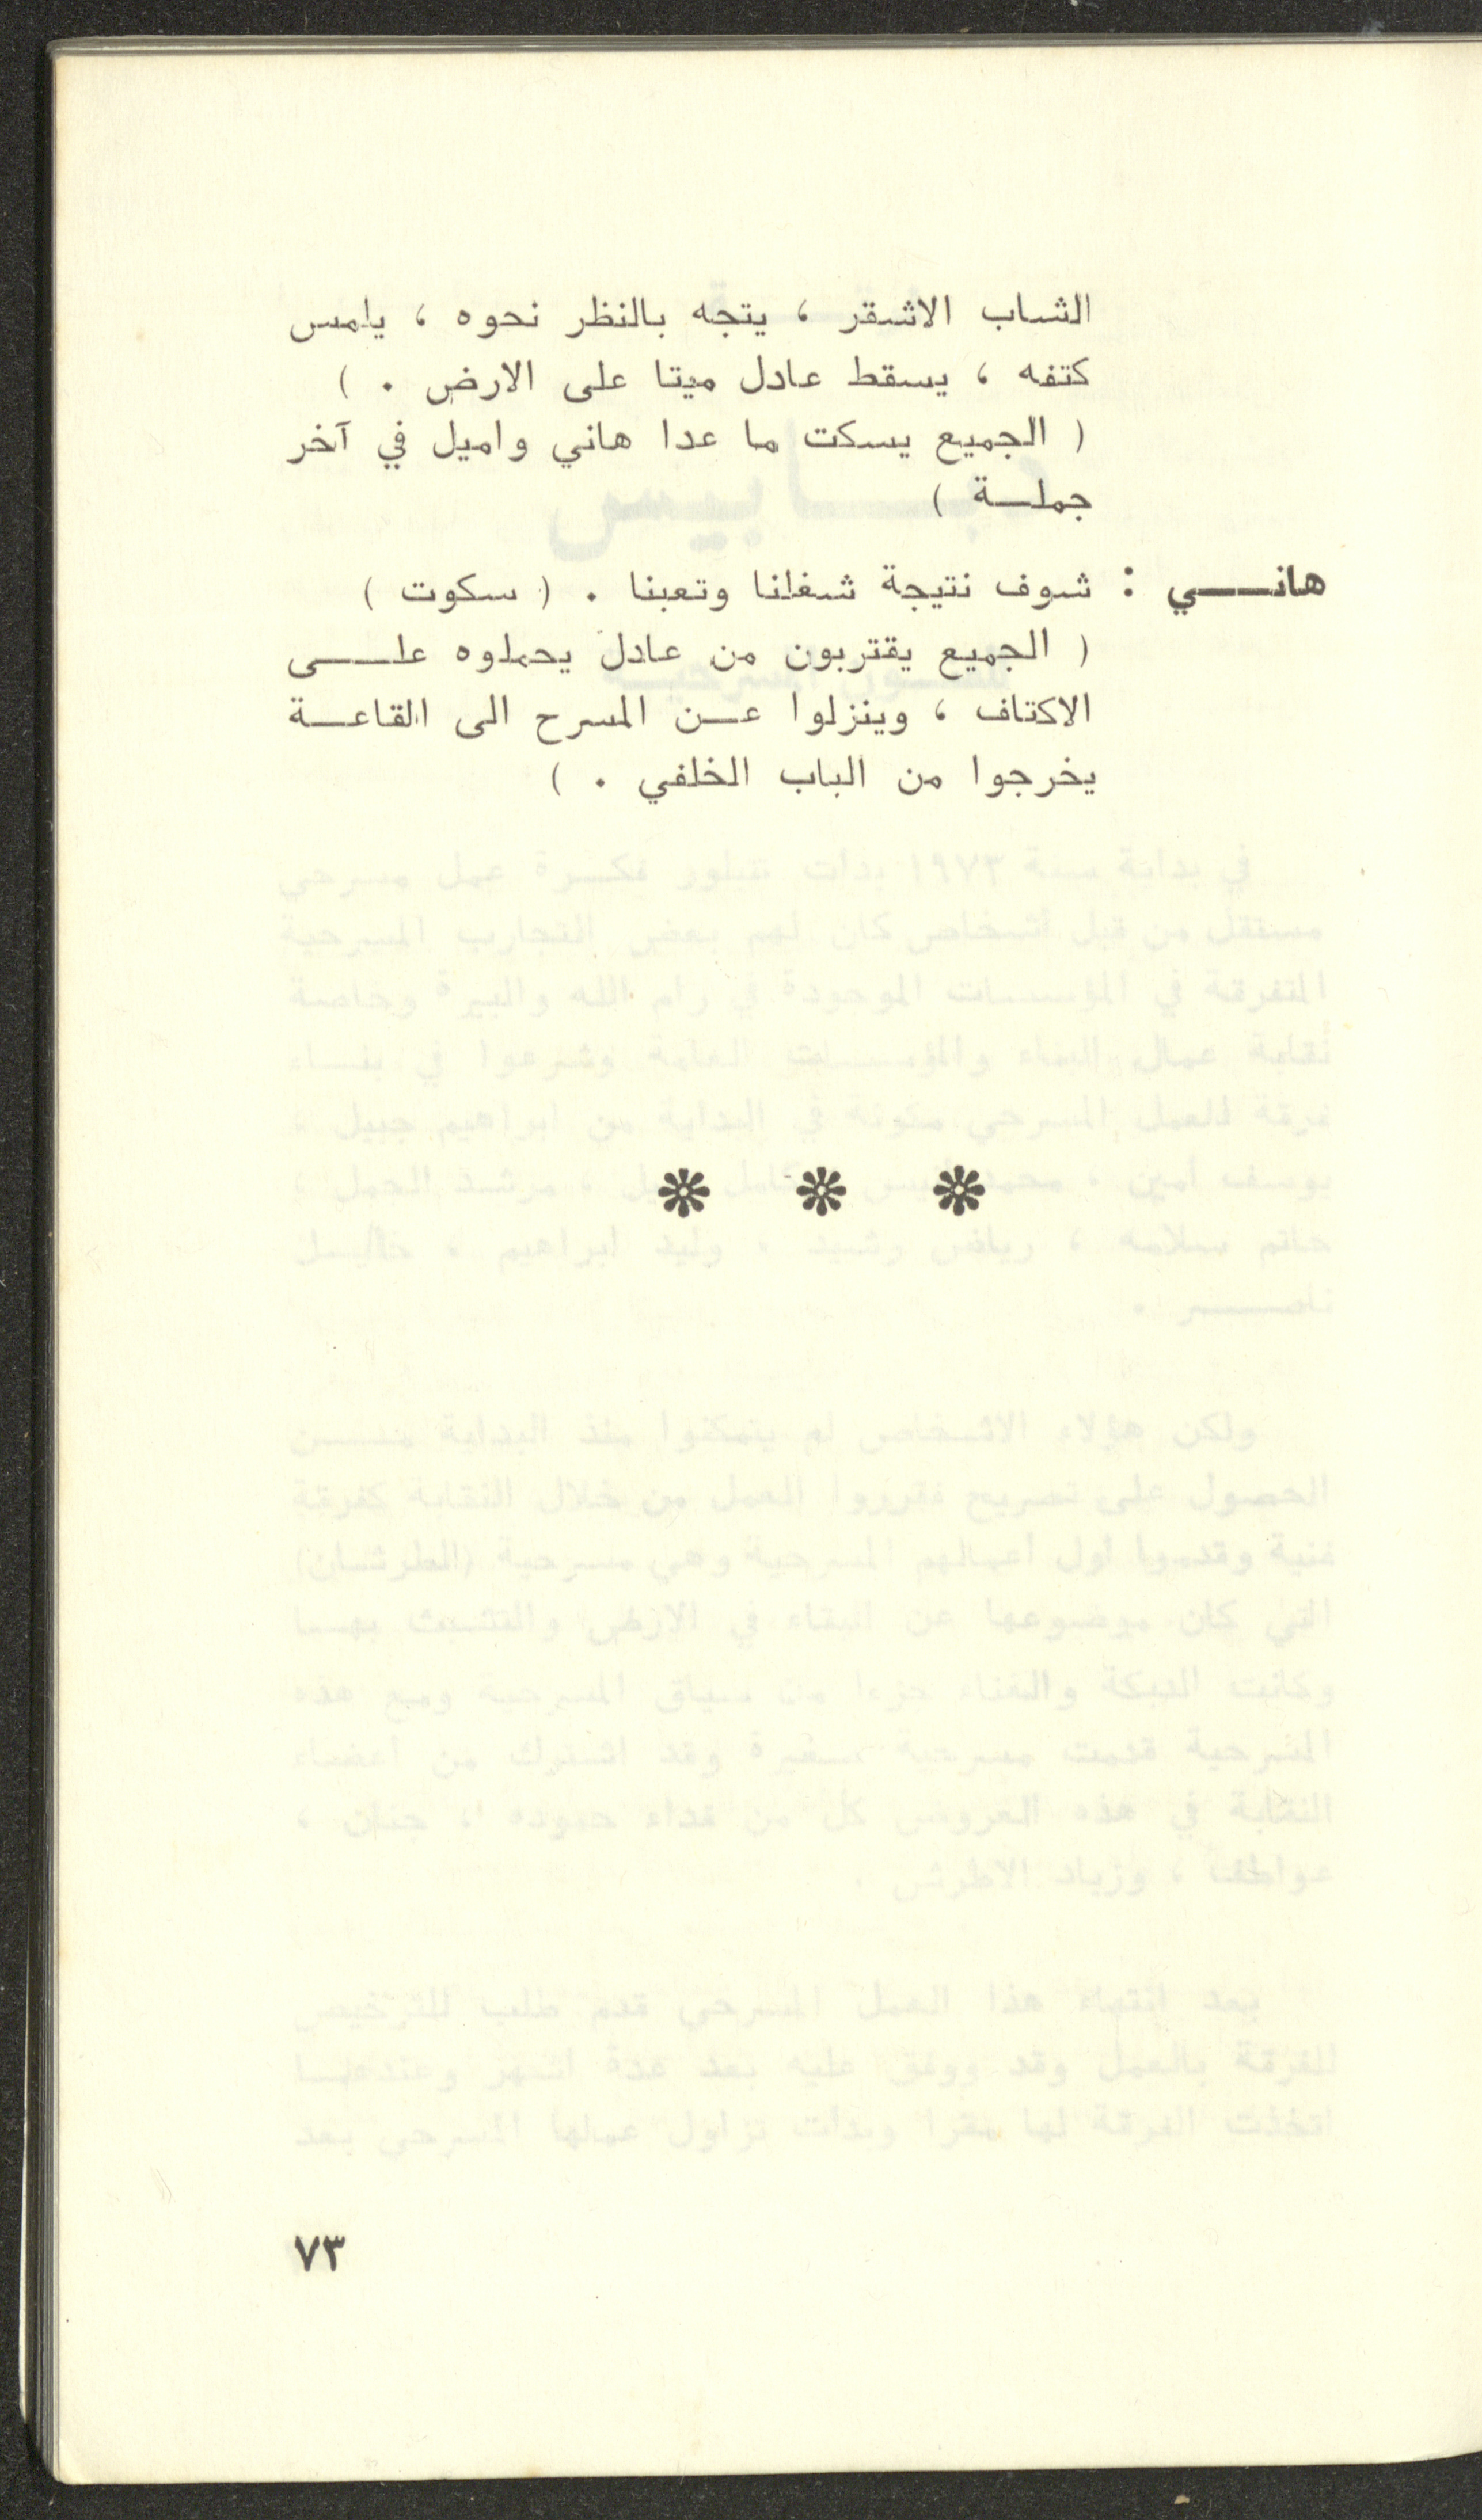 الشاب الاشقر ، يتجه بالنظر نحوه ، يلمس
كتفه ، يسقط عادل ميتا على الارض . )
( الجميع يسكت ما عدا هاني واميل في آخر
جملـــة )
هانــــي : شوف نتيجة شغلنا وتعبنا . ( سكوت )
( الجميع يقتربون من عادل يحملوه علـــى
الاكتاف ، وينزلوا عــن المسرح الى القاعــة
يخرجوا من الباب الخلفي . )
❊ ❊ ❊
٧٣